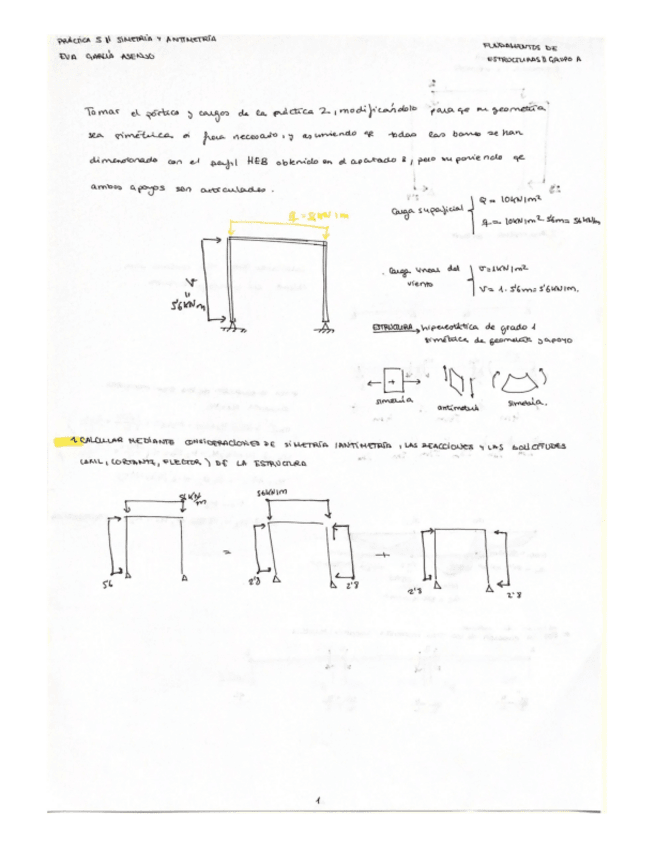 PRÁCTICA 5 // SIMETRÍA Y ANTIMETRÍA
EVA GARCÍA ASENJO
FUNDAMENTOS DE
ESTRUCTURAS GRUPO A
Tomar el pórtico y cargas de la práctica 2, modificándolo para qe su geometría
sea simétrica si fuera necesario, y asumiendo qe todas las barras se han
dimensionado con el perfil HEB obtenido en el apartado 8, pero suponiendo qe
ambos apoyos son articulados.
Carga superficial
Q = 10kN/m²
q = 10kN/m² · 5'6m = 56kN/m
V
5'6kN/m
Carga lineal del
viento
v = 1kN/m²
V = 1 · 5'6m = 5'6kN/m.
ESTRUCTURA, hiperestática de grado 1
simétrica de geometría y apoyo
simetría
antimetría
simetría.
1. CALCULAR MEDIANTE CONSIDERACIONES DE SIMETRÍA / ANTIMETRÍA, LAS REACCIONES Y LAS SOLICITUDES
(AXIL, CORTANTE, FLECTOR) DE LA ESTRUCTURA
56kN/m
56kN/m
5'6
=
2'8
2'8
+
2'8
2'8
1